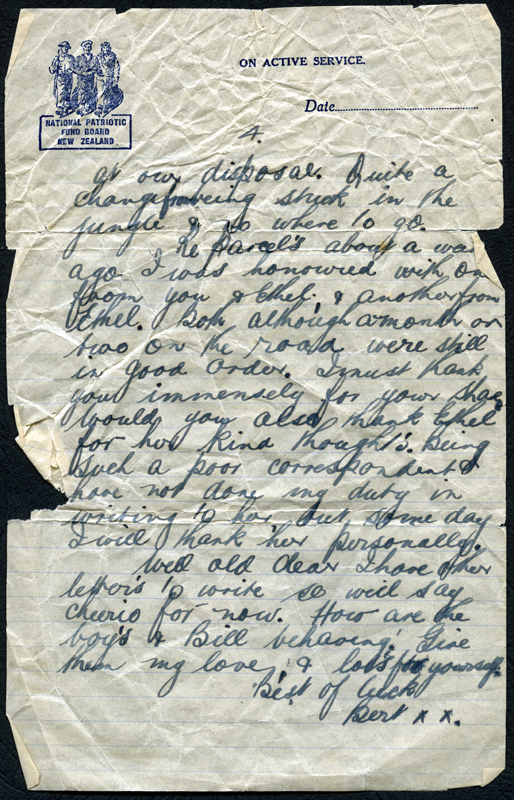 ON ACTIVE SERVICE.
Date
NATIONAL PATRIOTIC
FUND BOARD
NEW ZEALAND
4.
at our disposal. Quite a
change from being stuck in the
jungle & no where to go.
Re parcel's about a week
ago I was honoured with one
from you & Ethel. & another from
Ethel. Both although a month or
two on the road were still
in good order. I must thank
you immensely for your share
Would you also thank Ethel
for her kind thought's. Being
such a poor correspondent I
have not done my duty in
writing to her, but some day
I will thank her personally.
Well old dear I have other
letter's to write so will say
cheerio for now. How are the
boy's & Bill behaving. Give
them my love, & lots for yourself.
Best of luck
Bert x x.